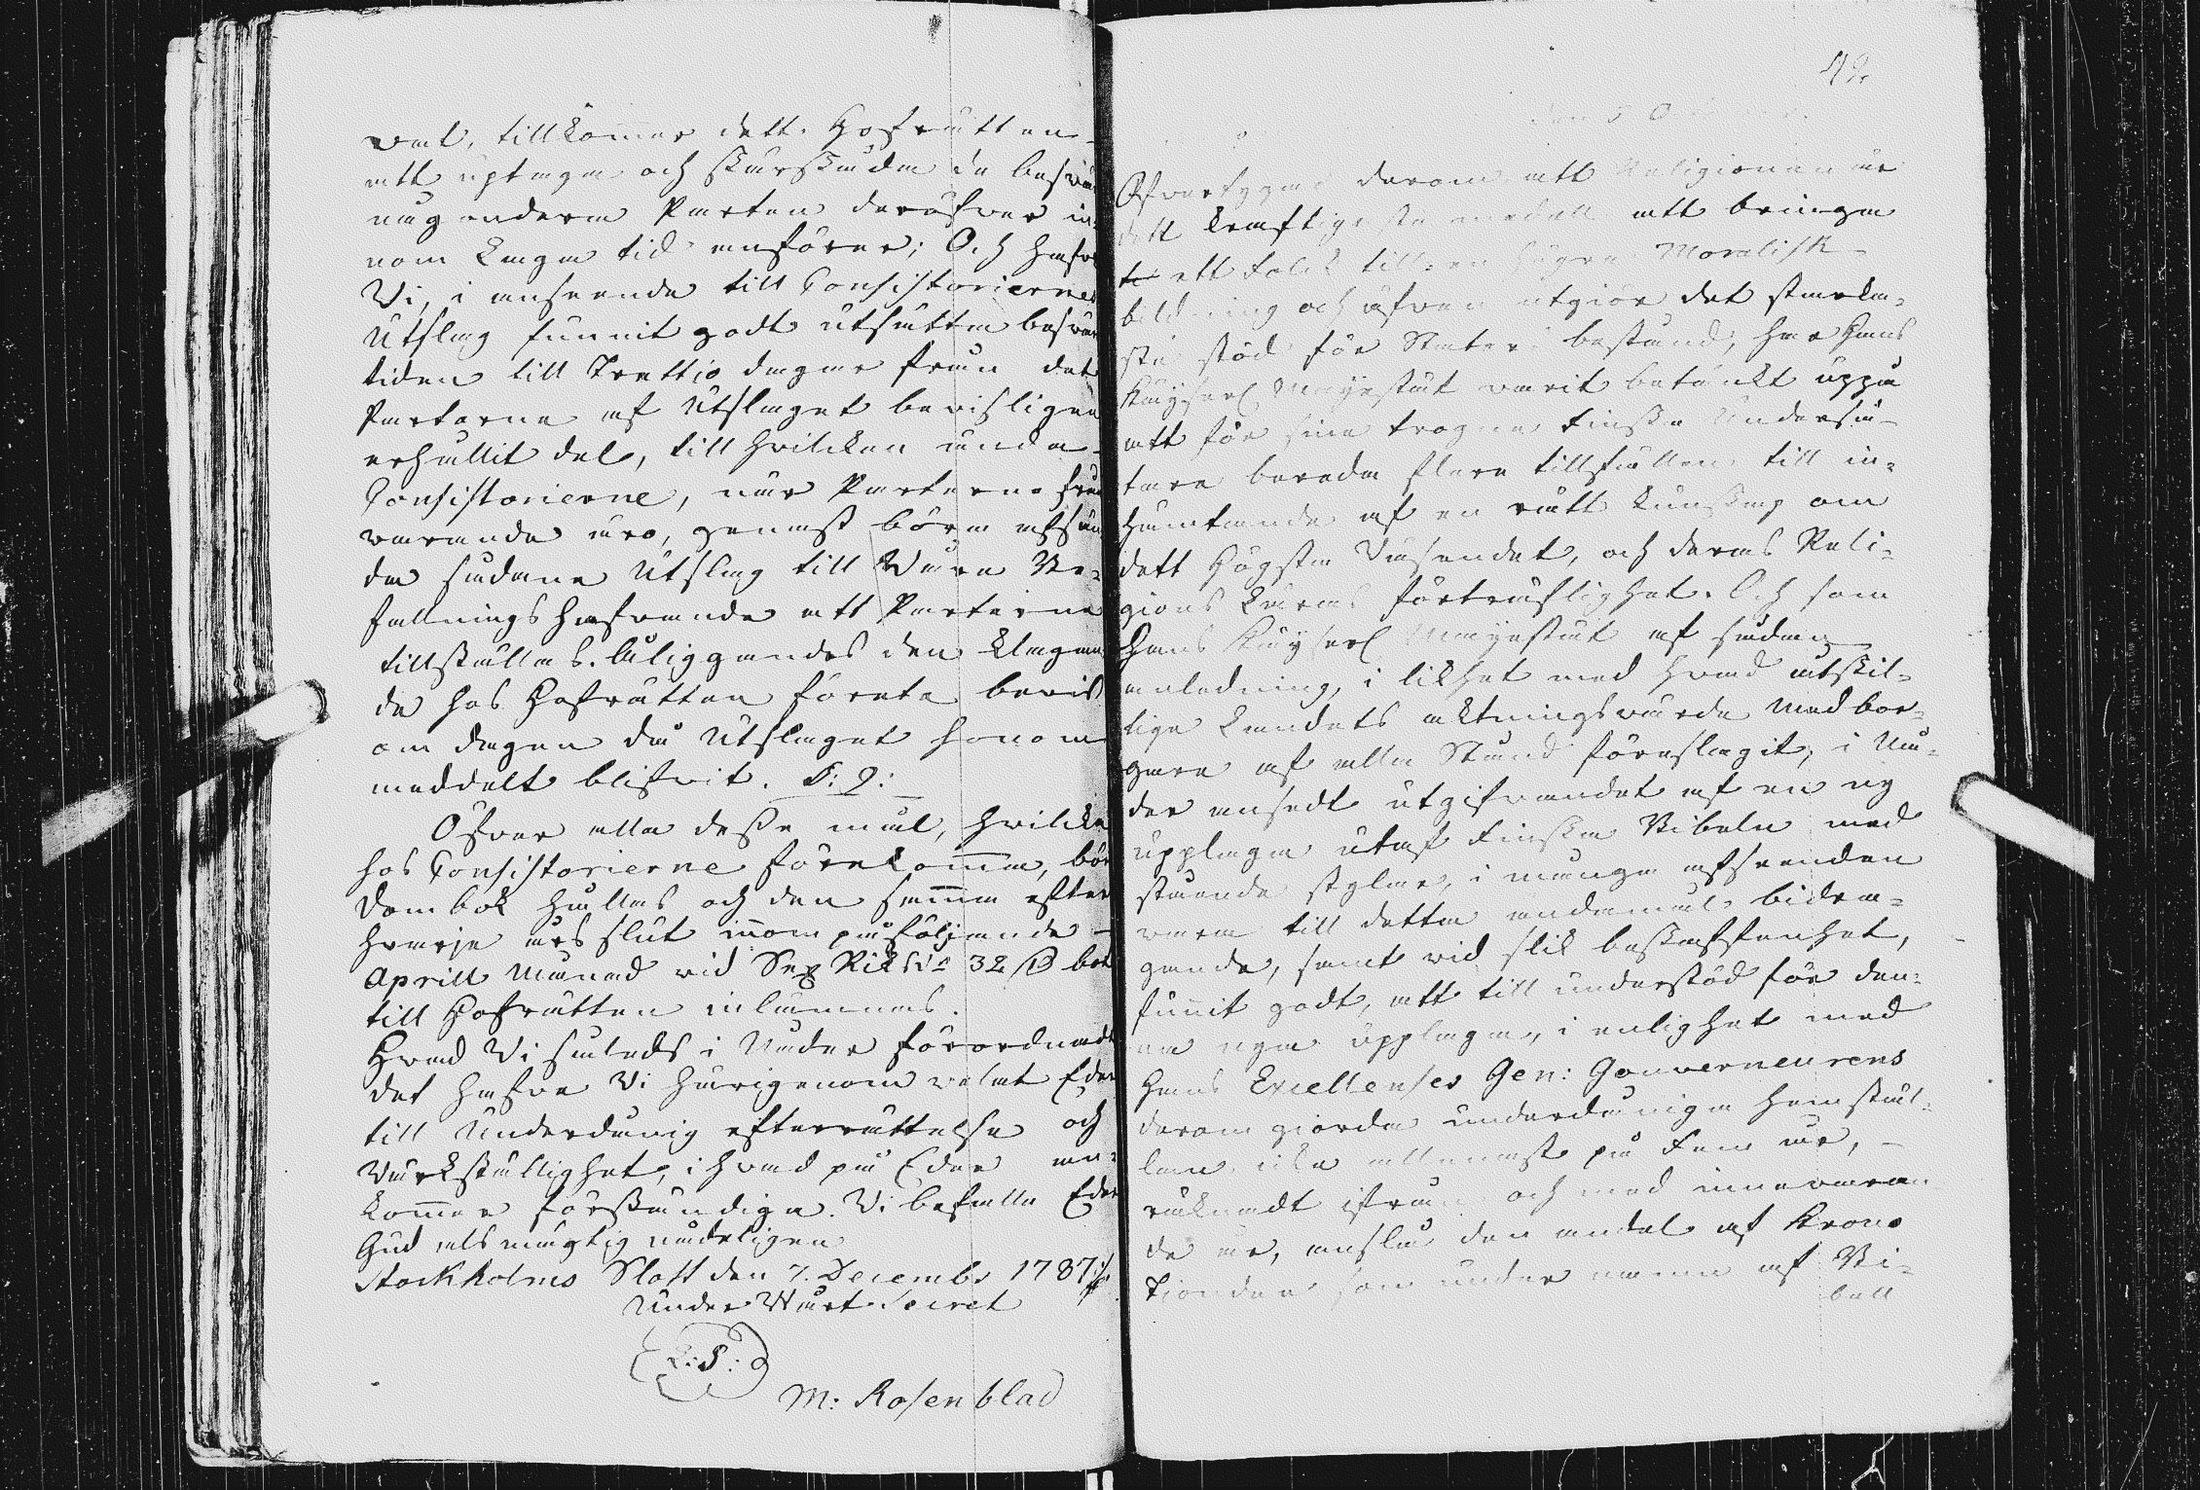 vat, tillkommer dett Hofrätten
att uptaga och skärskåda de beswär
någondera Parten deröfwer in-
nom Laga tid anförer; Och hafwe
Vi, i anseende till Consistoriernes
Utslag funnit godt utsätta beswärs
tiden till Trettio dagar från det
Parterne af Utslaget bevisligen
erhållit del, till hvilcken ända
Consistorierne, når Parterne från
varande äro, genast böra afsän
da sådane Utslag till Våre Be-
fallningshafvande att Parterne
tillställas. åliggandes den klagan
de hos Hofrätten förete bevis
om dagen då Utslaget honom
meddelt blifvit. §: 9:
Öfver alla desse mål, hvilcka
hos Consistorierne förekomma, bör
Dombok hållas och den samma efter
hvarje års slut inom påföljande
Aprill Månad vid Sex Riksd:r 32 ß bot
till Hofrätten inlämnas.
Hvad Vi således i Nåder förordnadt
det hafve Vi härigenom velat Eder
till Underdånig efterrättelse och
Värkställighet, i hvad på Eder an-
kommer förständiga. Vi befalle Eder
Gud alsmägtig nådeligen
Stockholms Slott den 7. Decembr 1787.
Under Vårt Secret
L: S:
M: Rosenblad
42
den 5 O
Öfvertygad derom att Religionen är
dett kraftigaste medell att bringa
ett Folck till en högre Moralisk
bildning och äfven utgiör det starka-
ste stöd för Staters bestånd, har Hans
Kayserl Mayestät varit betänkt uppå
att för sina trogna Finska Underså-
tare bereda flere tillfällen till in-
hämtande af en rätt kunskap om
dett Högsta Väsendet, och deras Reli-
gions Läras förträflighet. Och som
Hans Kayserl Mayestät af sådan
anledning, i likhet med hvad åtskil-
lige Landets aktningsvärde Medbor-
gare af alla Stånd föreslagit, i Nå-
der ansedt utgifvandet af en ny
upplaga utaf Finska Bibeln med
stående stylar, i många afseenden
vara till detta ändamål bidra-
gande, samt vid slik beskaffenhet,
funnit godt, att till understöd för den-
na nya upplaga, i enlighet med
Hans Excellences Gen: Gouverneurens
derom giorda underdåniga hemstäl-
lan icke allenast på Fem år,
räknadt ifrån och med innevaran
de år, anslå den andel af Krono
Tionden som under namn af Bi-
bell